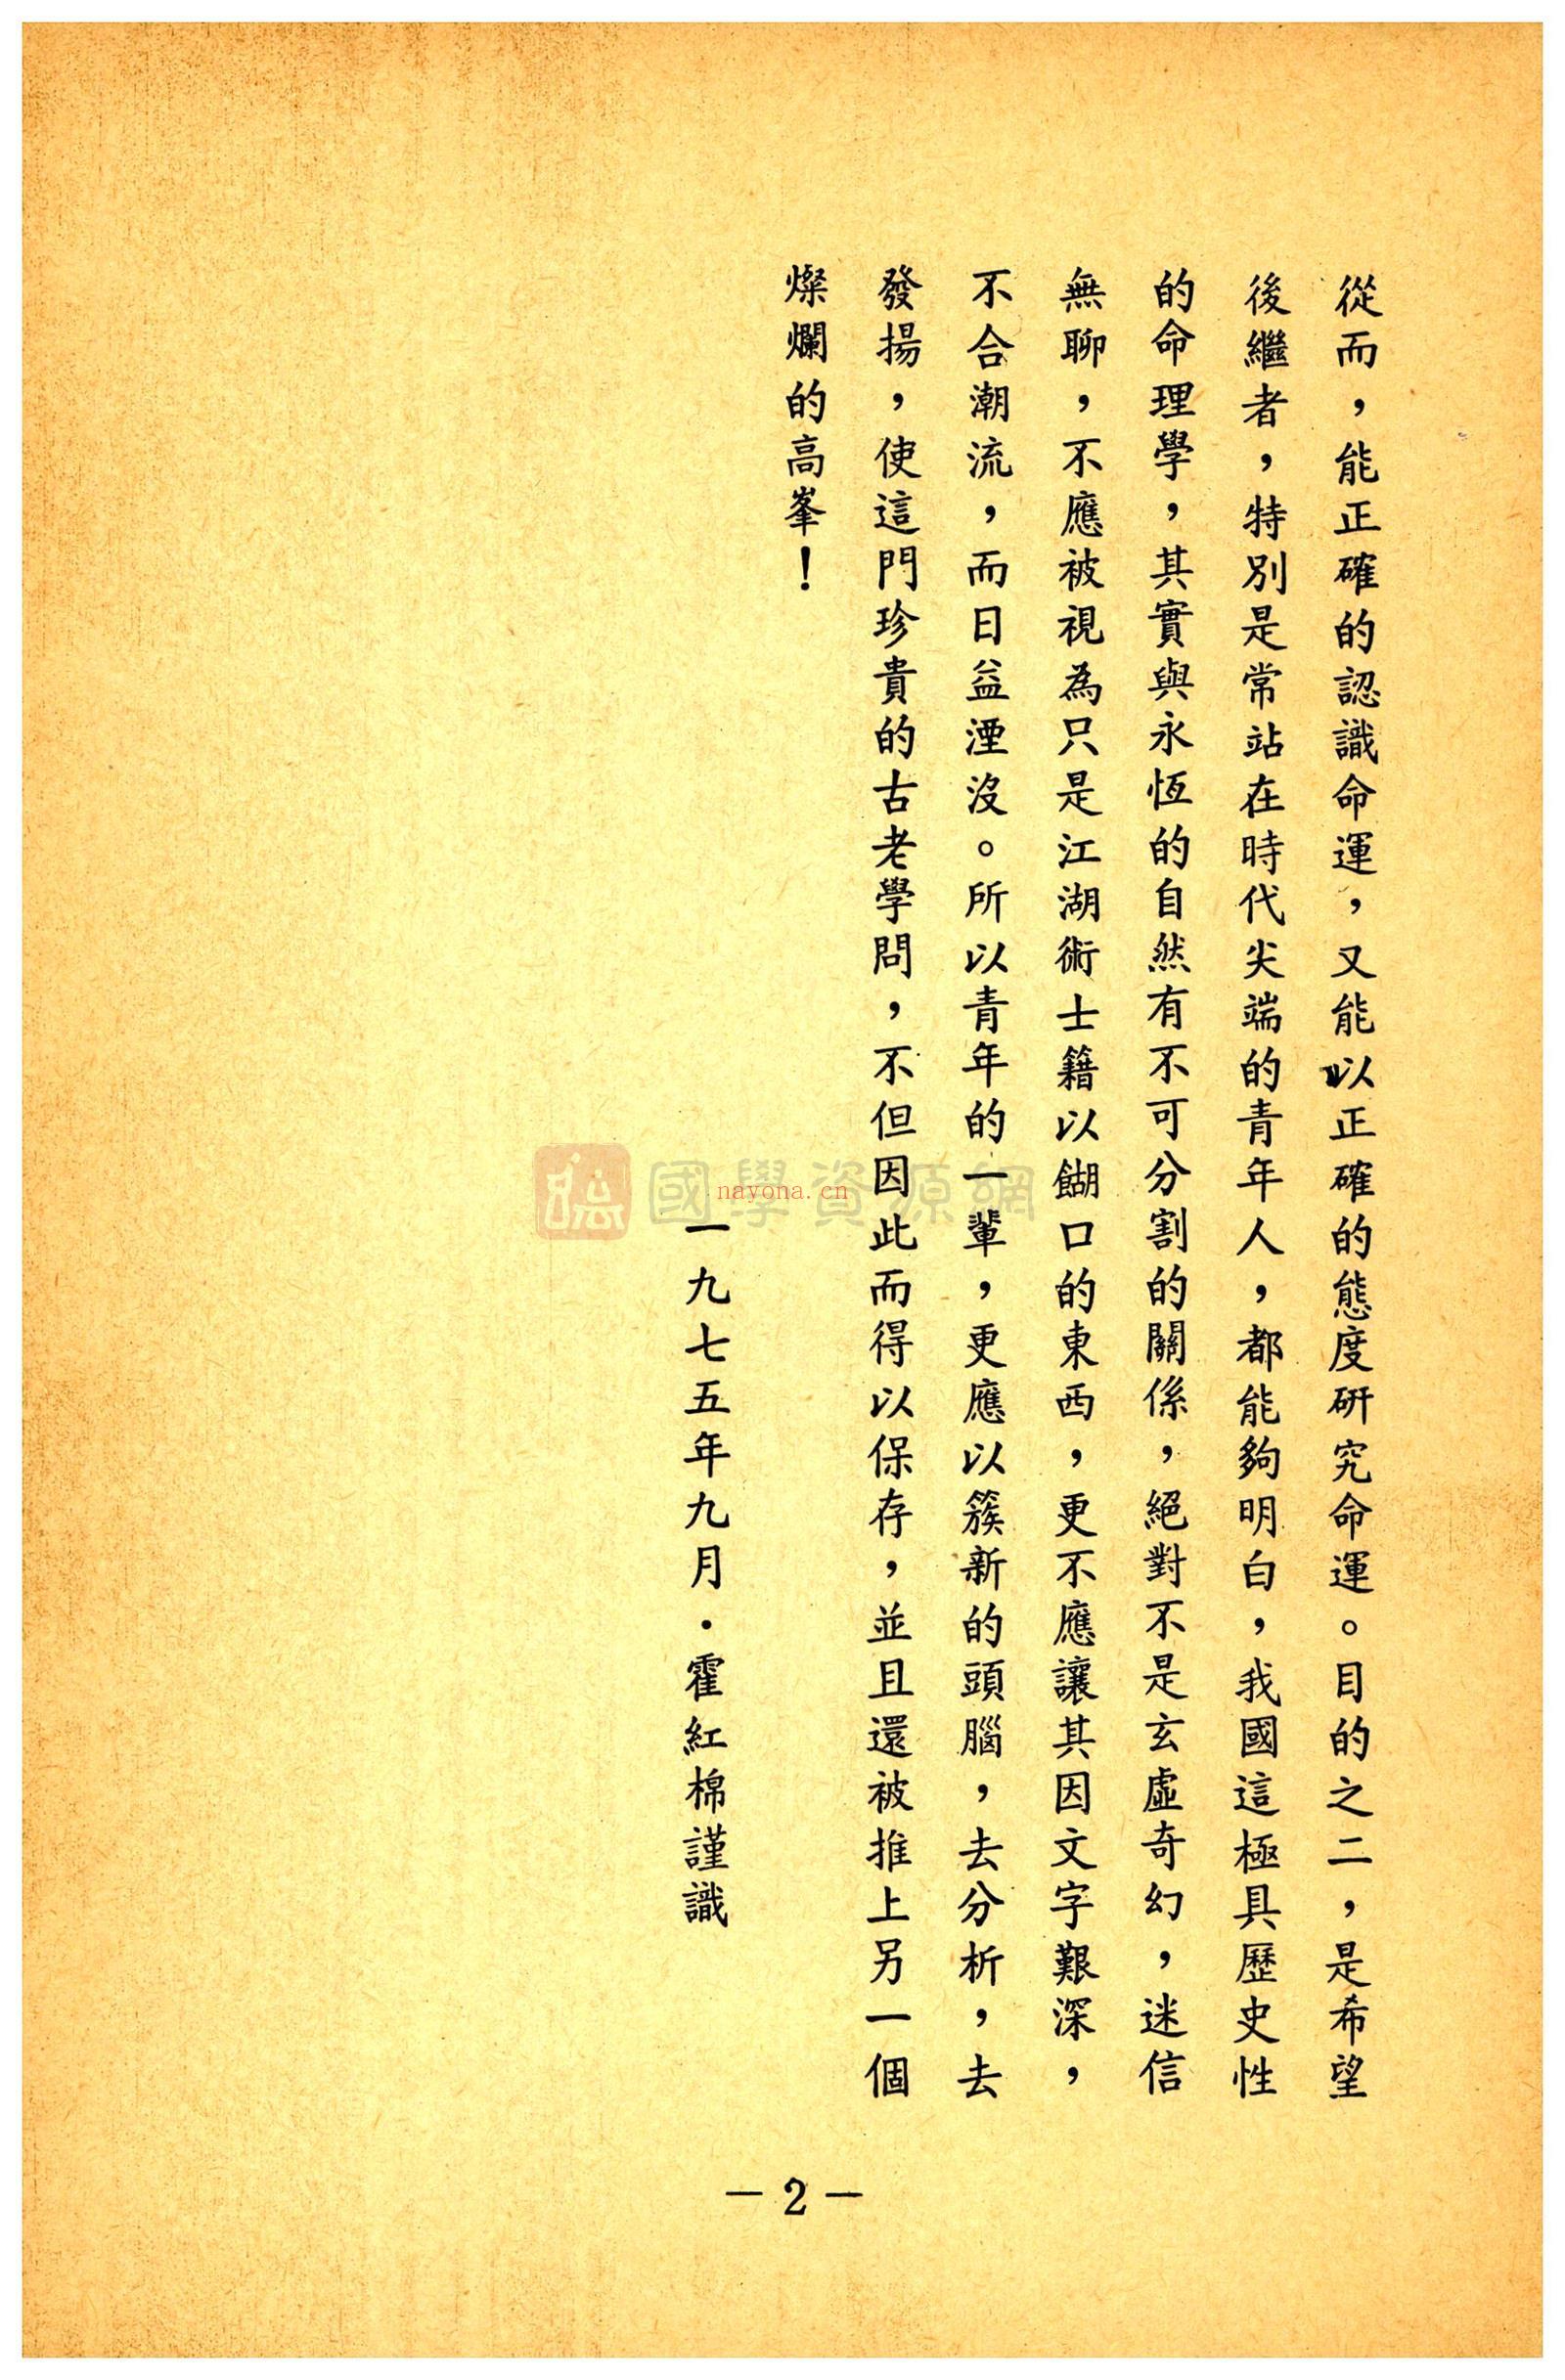 從而，能正確的認識命運，又能以正確的態度研究命運。目的之二，是希望
後繼者，特別是常站在時代尖端的青年人，都能夠明白，我國這極具歷史性
的命理學，其實與永恆的自然有不可分割的關係，絕對不是玄虛奇幻，迷信
無聊，不應被視為只是江湖術士籍以餬口的東西，更不應讓其因文字艱深，
不合潮流，而日益湮沒。所以青年的一輩，更應以簇新的頭腦，去分析，去
發揚，使這門珍貴的古老學問，不但因此而得以保存，並且還被推上另一個
燦爛的高峯！
一九七五年九月·霍紅棉謹識
國學資源網
nayona.cn
—2—